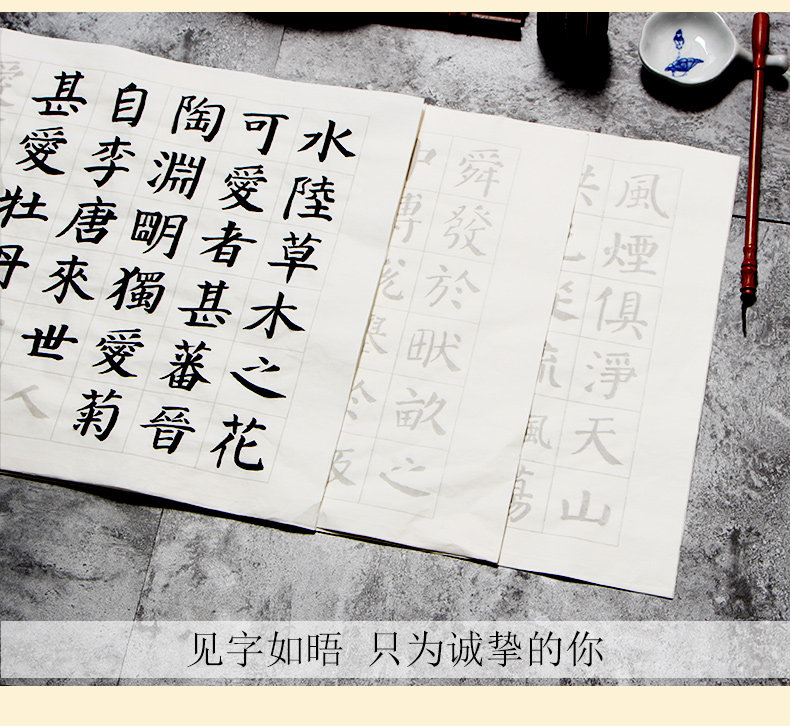 水陸草木之花
可愛者甚蕃晉
陶淵明獨愛菊
自李唐來世人
甚愛牡丹
舜發於畎畝之
風煙俱淨天山
见字如晤 只为诚挚的你